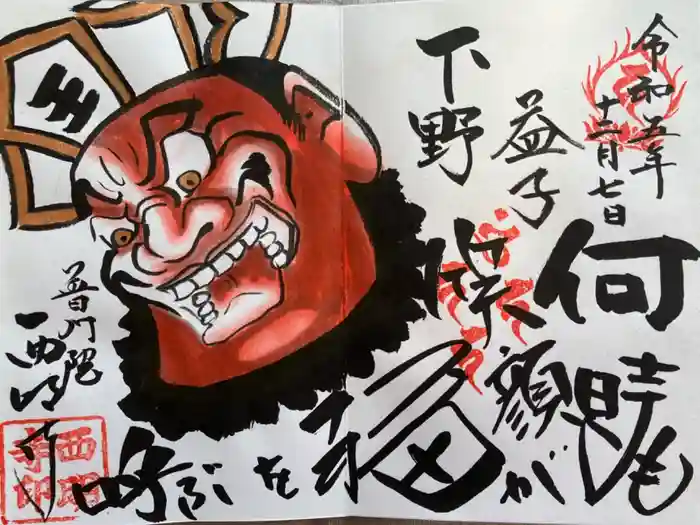 令和五年
十二月七日
下野
益子
何時も
笑顔が
福を
呼ぶ
普門院
西明寺
王
西明
寺印